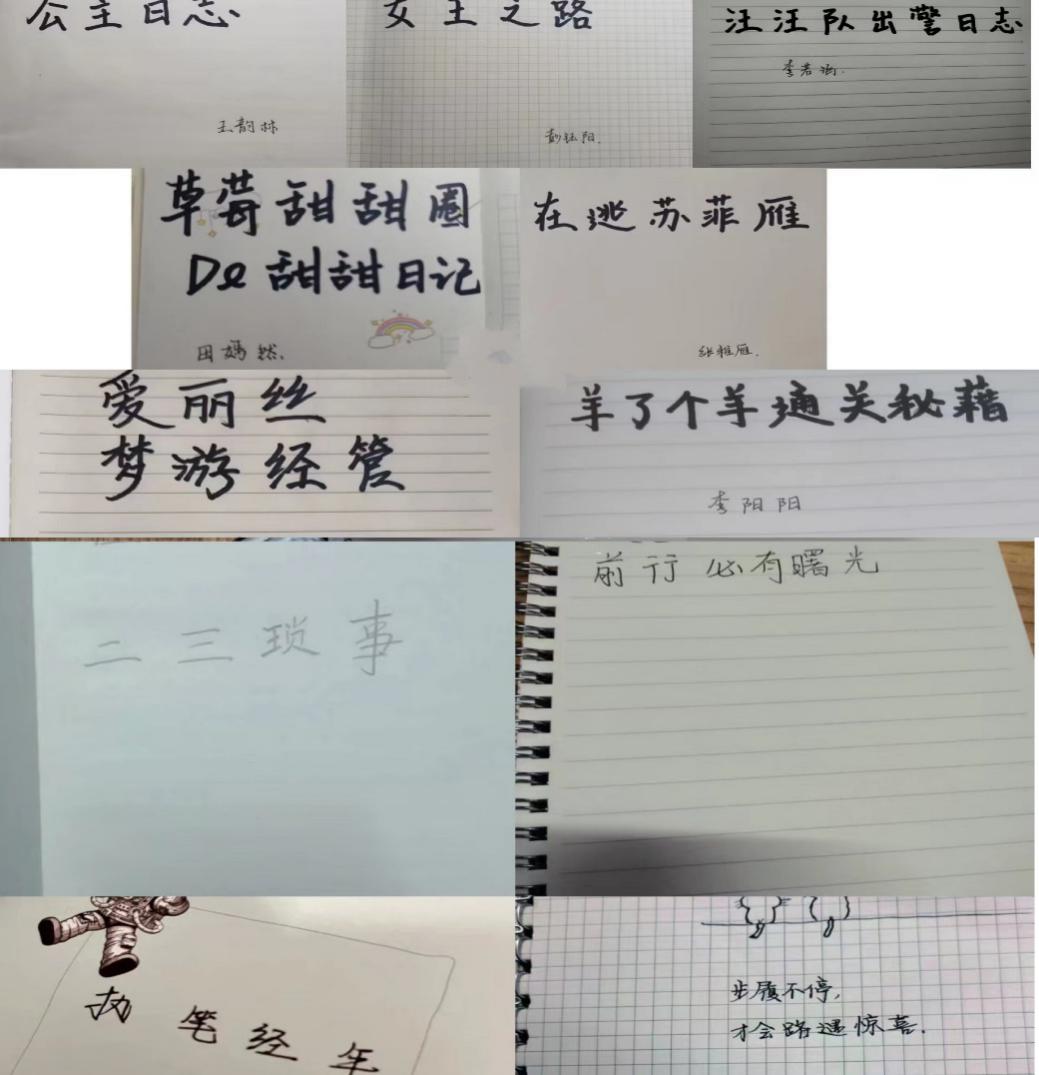 公主日志
王韵林
女王之路
彭钰阳.
汪汪队出警日志
李若涵.
草莓甜甜圈
De甜甜日记
田嫣然.
在逃苏菲雁
张雅雁.
爱丽丝
梦游经管
羊了个羊通关秘藉
李阳阳
二三琐事
前行 必有曙光
执笔经年
步履不停,
才会路遇惊喜.